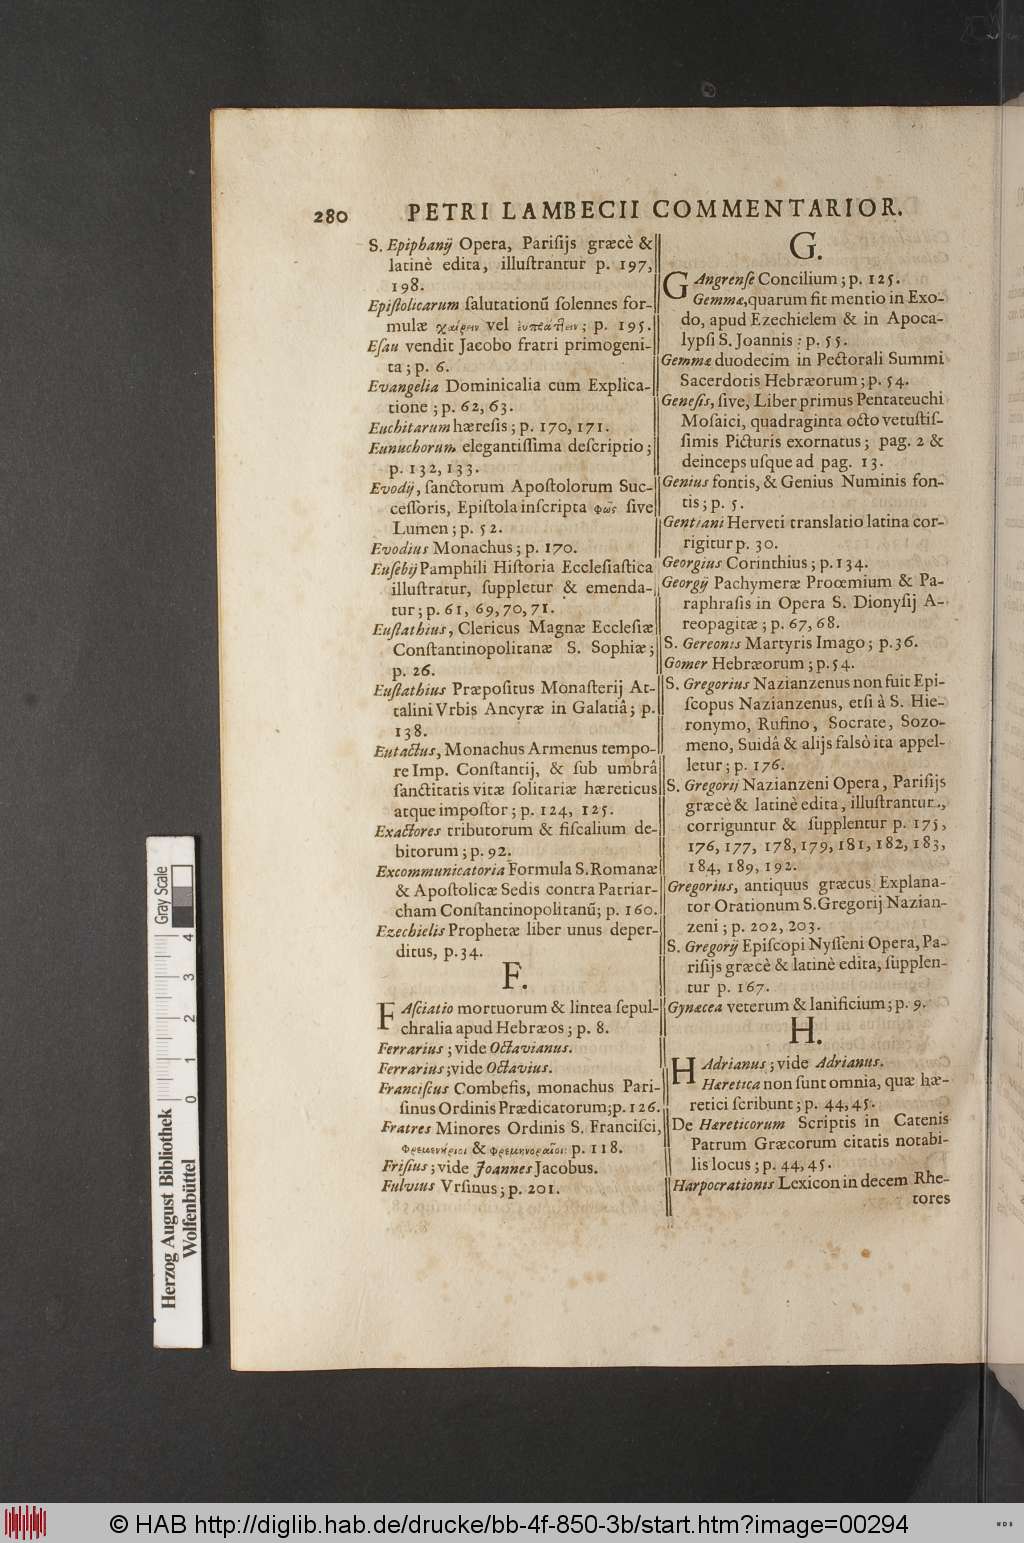 280 PETRI LAMBECII COMMENTARIOR.
S. Epiphanij Opera, Pariſijs græcè &
latinè edita, illuſtrantur p. 197,
198.
Epiſtolicarum ſalutationū ſolennes for-
mulæ χαίρειν vel ; p. 195.
Eſau vendit Jacobo fratri primogeni-
ta; p. 6.
Evangelia Dominicalia cum Explica-
tione; p. 62, 63.
Euchitarum hæreſis; p. 170, 171.
Eunuchorum elegantiſſima deſcriptio;
p. 132, 133.
Evodij, ſanctorum Apoſtolorum Suc-
ceſſoris, Epiſtola inſcripta φῶς ſive
Lumen; p. 52.
Evodius Monachus; p. 170.
Euſebij Pamphili Hiſtoria Eccleſiaſtica
illuſtratur, ſuppletur & emenda-
tur; p. 61, 69, 70, 71.
Euſtathius, Clericus Magnæ Eccleſiæ
Conſtantinopolitanæ S. Sophiæ;
p. 26.
Euſtathius Præpoſitus Monaſterij At-
talini Vrbis Ancyræ in Galatiâ; p.
138.
Eutactus, Monachus Armenus tempo-
re Imp. Conſtantij, & ſub umbrâ
ſanctitatis vitæ ſolitariæ hæreticus
atque impoſtor; p. 124, 125.
Exactores tributorum & fiſcalium de-
bitorum; p. 92.
Excommunicatoria Formula S. Romanæ
& Apoſtolicæ Sedis contra Patriar-
cham Conſtantinopolitanū; p. 160.
Ezechielis Prophetæ liber unus deper-
ditus, p. 34.
F.
FAſciatio mortuorum & lintea ſepul-
chralia apud Hebræos; p. 8.
Ferrarius; vide Octavianus.
Ferrarius; vide Octavius.
Franciſcus Combefis, monachus Pari-
ſinus Ordinis Prædicatorum; p. 126.
Fratres Minores Ordinis S. Franciſci,
& p. 118.
Friſius; vide Joannes Jacobus.
Fulvius Vrſinus; p. 201.
G.
GAngrenſe Concilium; p. 125.
Gemmæ, quarum fit mentio in Exo-
do, apud Ezechielem & in Apoca-
lypſi S. Joannis: p. 55.
Gemmæ duodecim in Pectorali Summi
Sacerdotis Hebræorum; p. 54.
Geneſis, ſive, Liber primus Pentateuchi
Moſaici, quadraginta octo vetuſtiſ-
ſimis Picturis exornatus; pag. 2 &
deinceps uſque ad pag. 13.
Genius fontis, & Genius Numinis fon-
tis; p. 5.
Gentiani Herveti translatio latina cor-
rigitur p. 30.
Georgius Corinthius; p. 134.
Georgij Pachymeræ Proœmium & Pa-
raphraſis in Opera S. Dionyſij A-
reopagitæ; p. 67, 68.
S. Gereonis Martyris Imago; p. 36.
Gomer Hebræorum; p. 54.
S. Gregorius Nazianzenus non fuit Epi-
ſcopus Nazianzenus, etſi à S. Hie-
ronymo, Rufino, Socrate, Sozo-
meno, Suidâ & alijs falsò ita appel-
letur; p. 176.
S. Gregorij Nazianzeni Opera, Pariſijs
græcè & latinè edita, illuſtrantur,
corriguntur & ſupplentur p. 175,
176, 177, 178, 179, 181, 182, 183,
184, 189, 192.
Gregorius, antiquus græcus Explana-
tor Orationum S. Gregorij Nazian-
zeni; p. 202, 203.
S. Gregorij Epiſcopi Nyſſeni Opera, Pa-
riſijs græcè & latinè edita, ſupplen-
tur p. 167.
Gynæcea veterum & lanificium; p. 9.
H.
HAdrianus; vide Adrianus.
Hæretica non ſunt omnia, quæ hæ-
retici ſcribunt; p. 44, 45.
De Hæreticorum Scriptis in Catenis
Patrum Græcorum citatis notabi-
lis locus; p. 44, 45.
Harpocrationis Lexicon in decem Rhe-
tores
Gray Scale
0 1 2 3 4
Herzog August Bibliothek
Wolfenbüttel
© HAB http://diglib.hab.de/drucke/bb-4f-850-3b/start.htm?image=00294